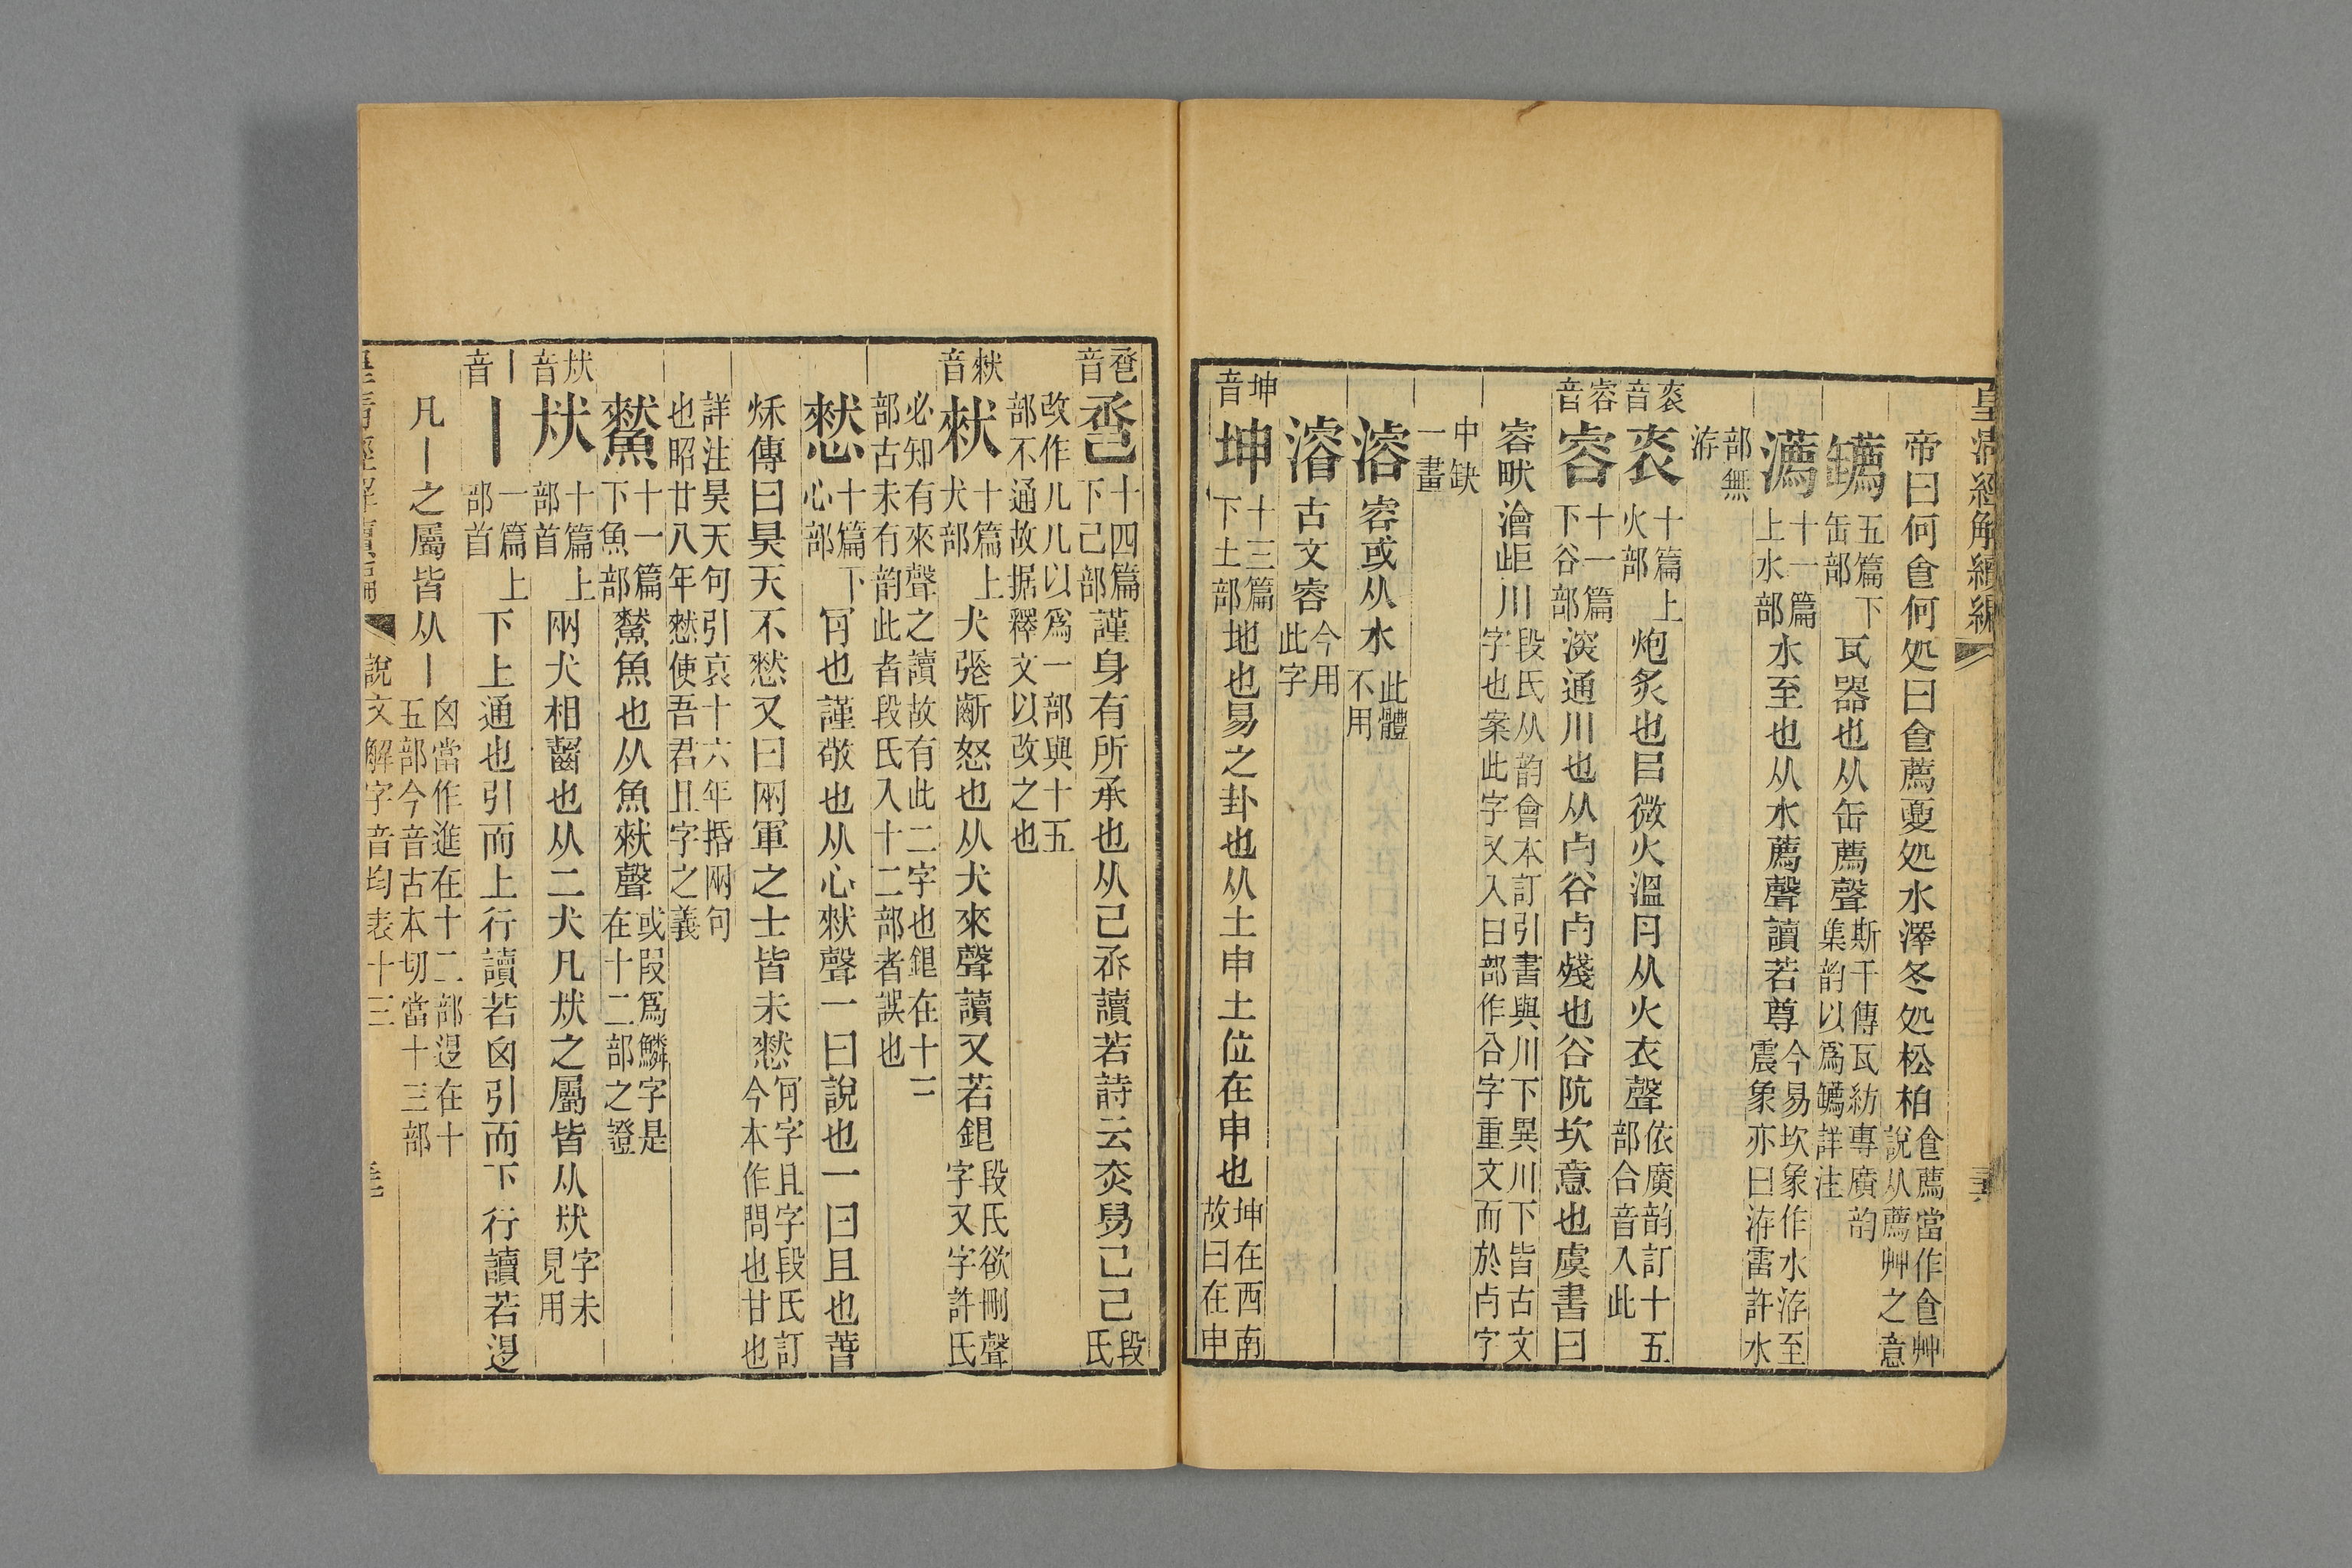 皇清經解續編
帝曰何𠊊何処曰𠊊薦夏処水澤冬処松柏𠊊薦當作𠊊艸說从薦艸之意
罏五篇下缶部瓦器也从缶薦聲斯干傳瓦紡專廣韵集韵以爲罏詳注
瀳十一篇上水部水至也从水薦聲讀若尊今易坎象作水洊至震象亦曰洊雷許水
部無洊
衮音
裒十篇上火部炮炙也㠯微火溫⺼从火衣聲依廣韵訂十五部合音入此
容音
容十一篇下谷部㴱通川也从卢谷卢殘也谷阬坎意也虞書曰
容畎澮歫川段氏从韵會本訂引書與川下異川下皆古文字也案此字又入曰部作㕣字重文而於卢字
中缺一畫
濬容或从水此體不用
濬古文容今用此字
坤音
坤十三篇下土部地也易之卦也从土申土位在申也坤在西南故曰在申
巹音
巹十四篇下己部謹身有所承也从己丞讀若詩云赤舄己己段氏
改作几几以爲一部與十五部不通故据釋文以改之也
猌音
猌十篇上犬部犬張齗怒也从犬來聲讀又若銀段氏欲刪聲字又字許氏
必知有來聲之讀故有此二字也銀在十三部古未有韵此者段氏入十二部者誤也
憖十篇下心部冃也謹敬也从心猌聲一曰說也一曰且也萅
秌傳曰昊天不憖又曰兩軍之士皆未憖冃字且字段氏訂今本作問也甘也
詳注昊天句引哀十六年㨉兩句也昭廿八年憖使吾君且字之義
䲉十一篇下魚部䲉魚也从魚猌聲或叚爲鱗字是在十二部之證
㹜音
㹜十篇上部首兩犬相齧也从二犬凡㹜之屬皆从㹜字未見用
丨音
丨一篇上部首下上通也引而上行讀若囟引而下行讀若𨑔
凡丨之屬皆从丨囟當作進在十二部𨑔在十五部今音古本切當十三部
說文解字音均表十三